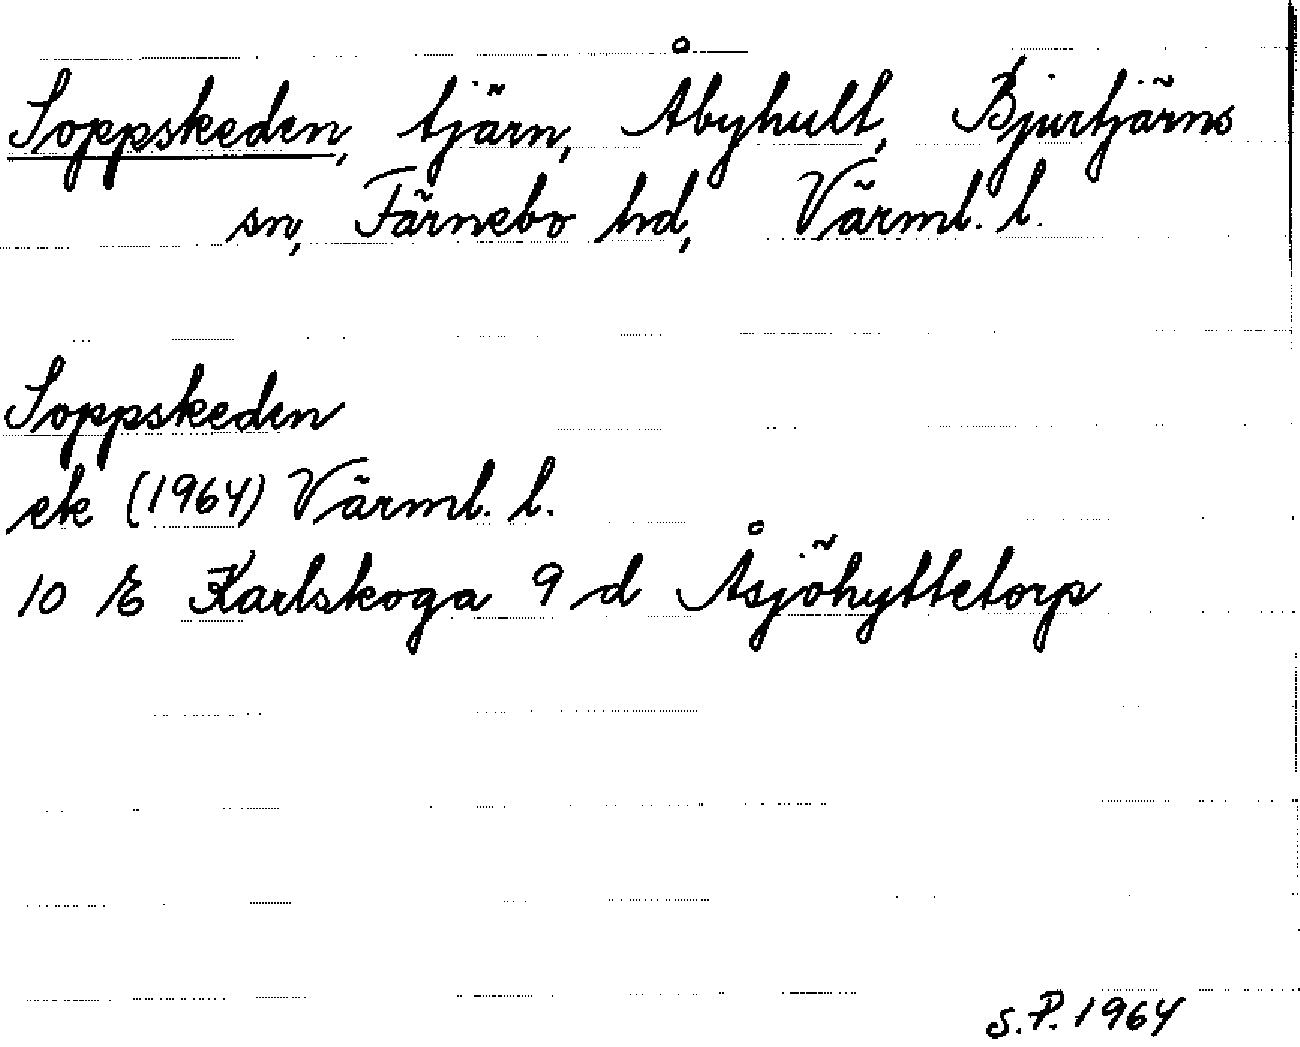 Soppskeden, tjärn, Åbyhult, Bjurtjärns
sn, Färnebo hd, Värml. l.
Soppskeden
ek (1964) Värml. l.
10 E Karlskoga 9 d Åsjöhyttetorp
S.P. 1964